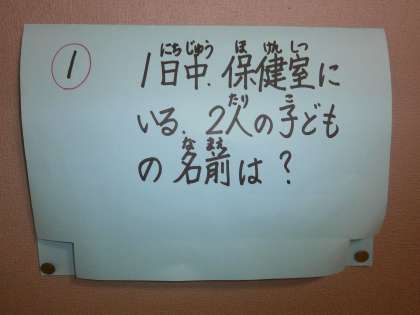 ①
1日中、保健室に
いる、2人の子ども
の名前は?
にちじゅう ほけんしつ
たり こ
なまえ